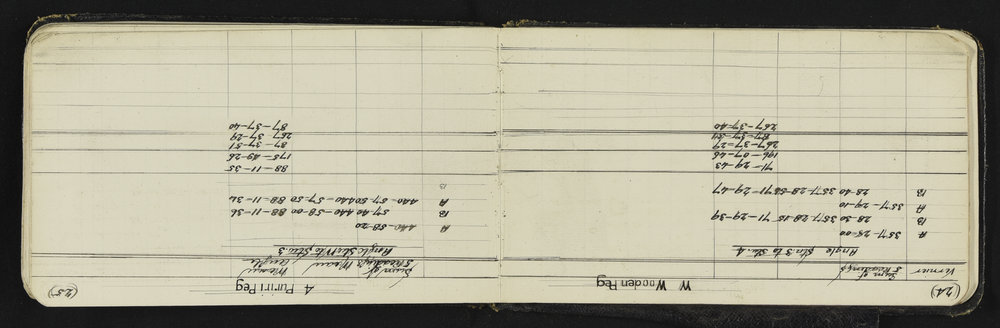 (24)
W Wooden Peg
Vernier Sum of 5 Readings
Angle Sta. 3 to Sta. 4
A 357-28-00
B 28-30 357-28-15 71-29-39
A 357-29-10
B 28-40 357-28-55 71-29-47
71-29-43
196-07-46
267-37-29
87-37-51
267-37-40
(25)
4 Puriri Peg
Sum of 5 Readings Mean Mean Angle
Angle Sta W to Sta 3
A 440-58-20
B 57-40 440-58-00 88-11-36
A 440-57-50 440-57-50 88-11-34
B
88-11-35
175-49-26
87-37-51
267-37-29
87-37-40